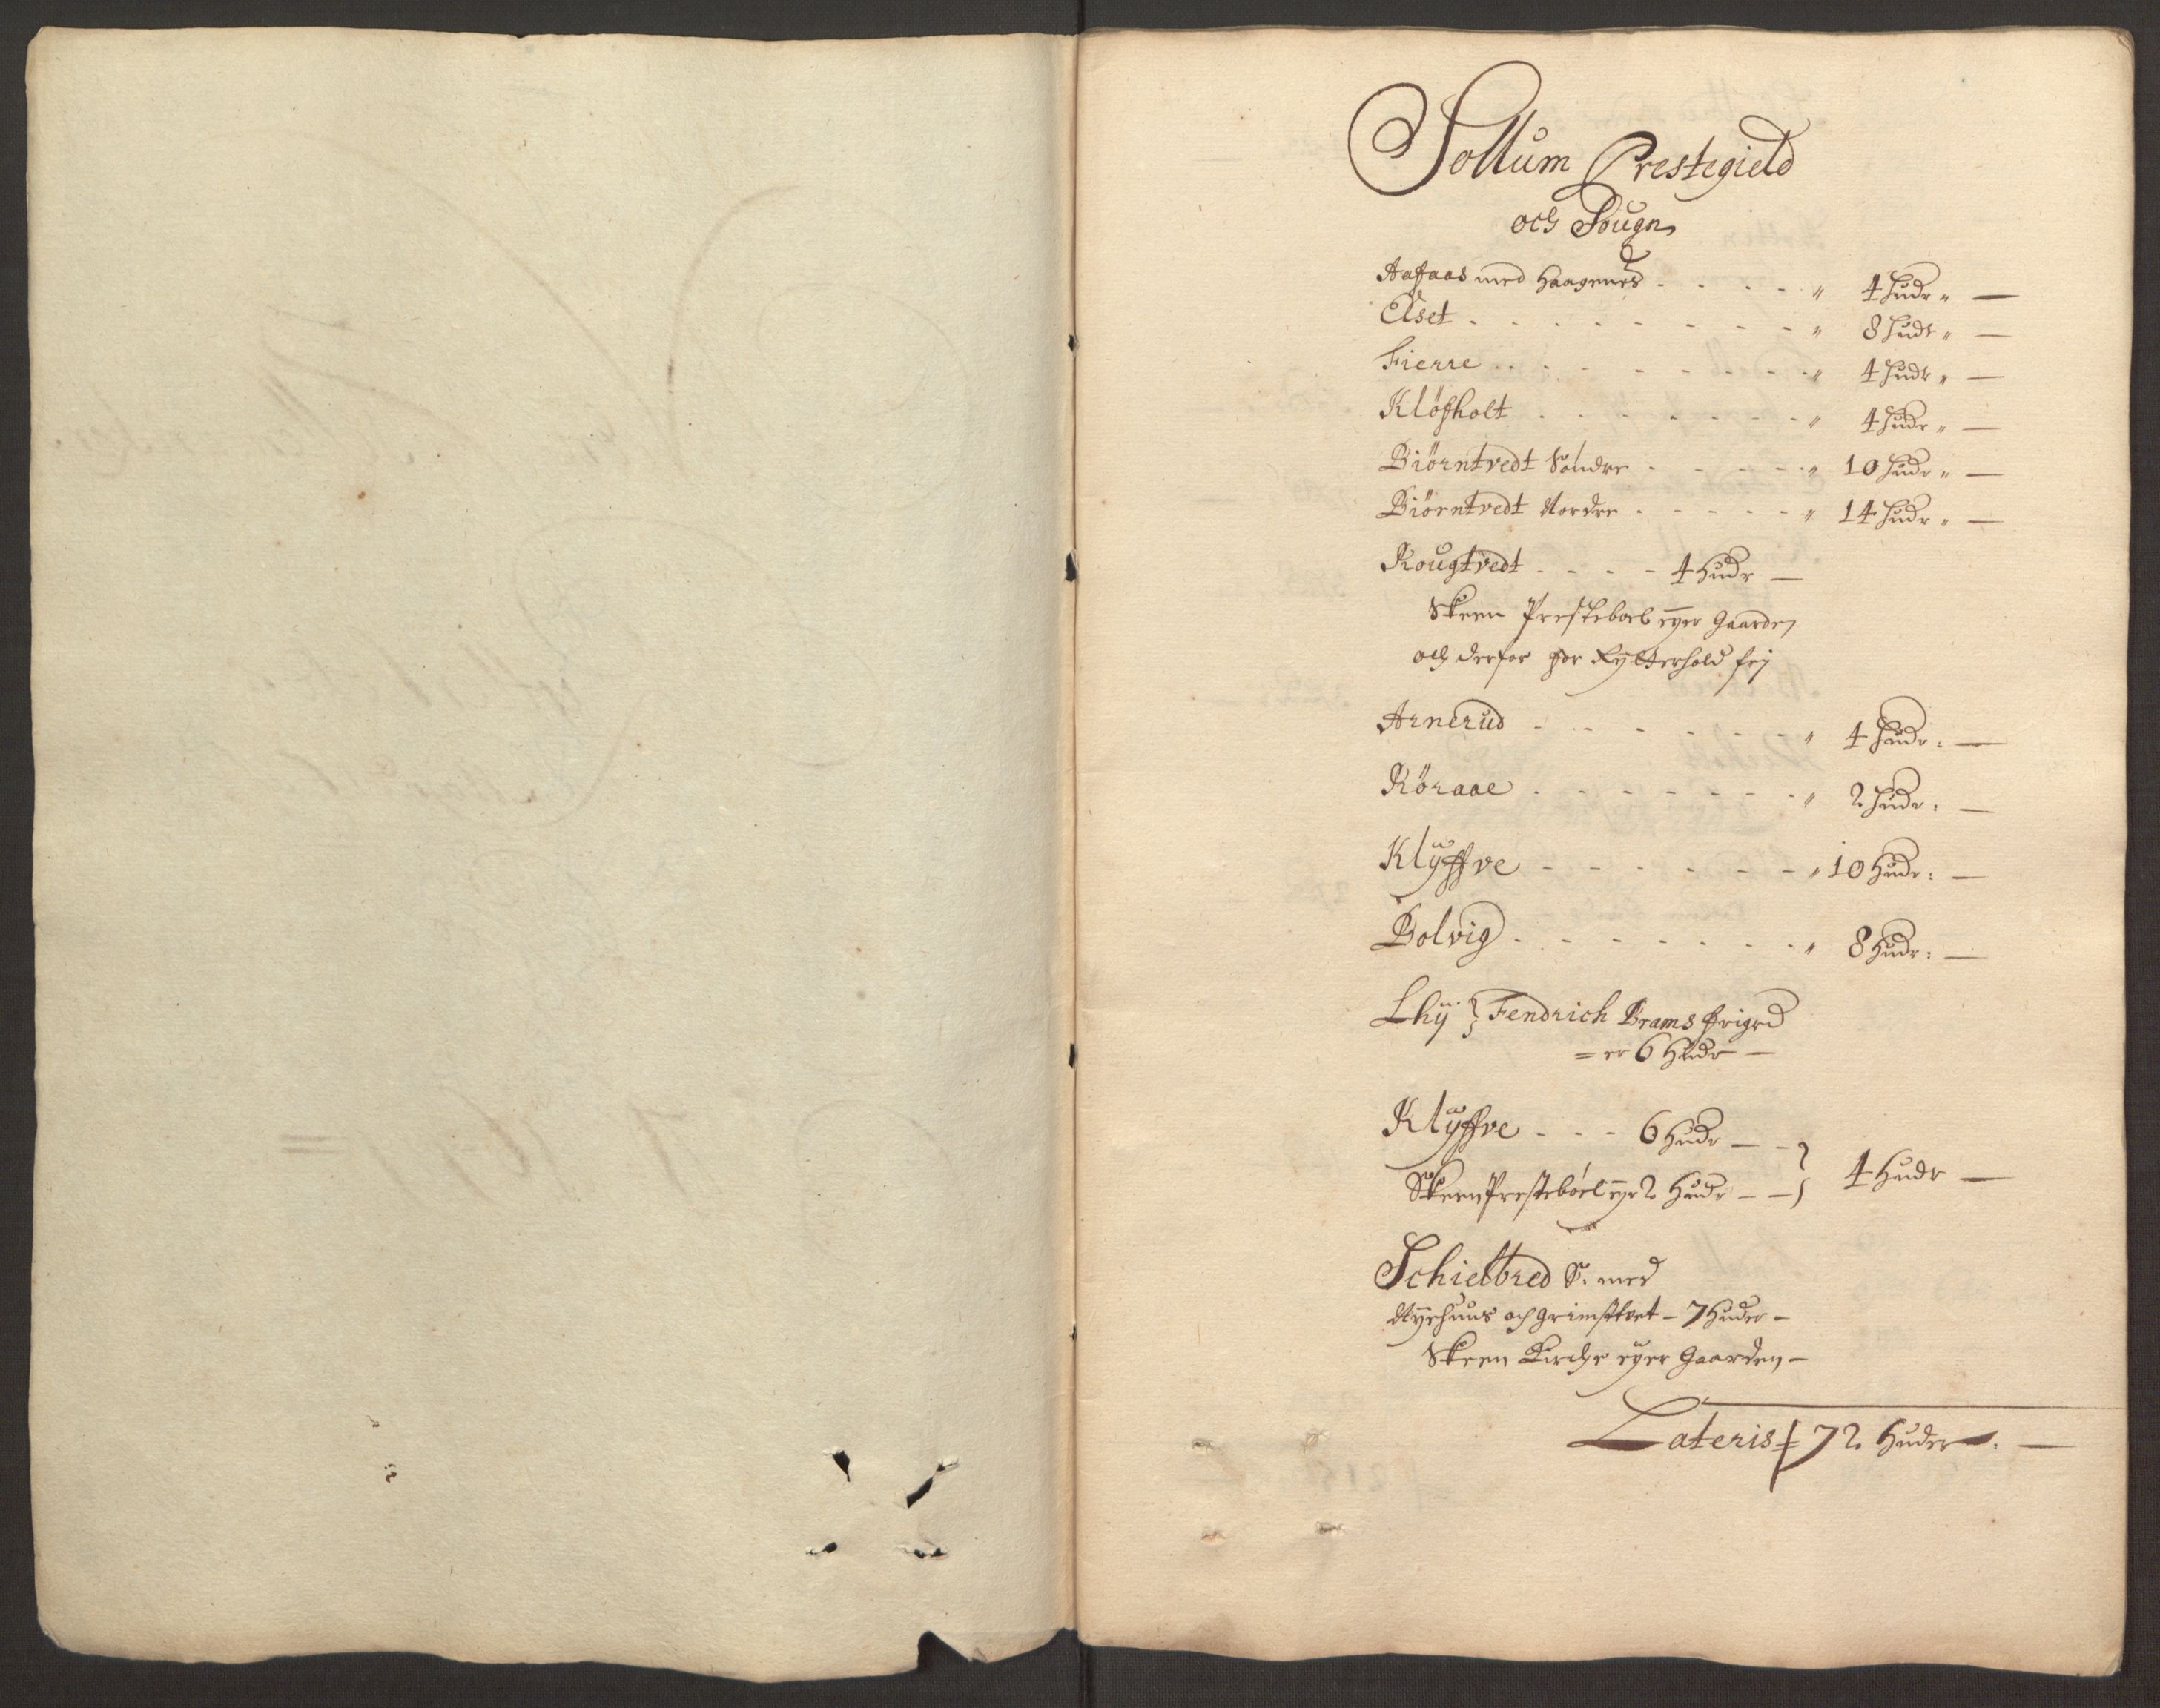 Sollum Prestegield
och Sougn
Aafaas med Haagenes - - - - " 4 Hudr " —
Elset - - - - - - - - " 8 Hudr " —
Fierre - - - - - - - - " 4 Hudr " —
Klöfholt - - - - - - - " 4 Hudr " —
Biörntvedt Söndre - - - - - " 10 Hudr " —
Biörntvedt Nordre - - - - - " 14 Hudr " —
Rougtvedt - - - - 4 Hudr —
Skeen Presteboel eyer Gaarden
och derfor for Rytterhold frj
Arnerud - - - - - - - " 4 Hudr : —
Röraae - - - - - - - " 2 Hudr : —
Klyffve - - - - - - " 10 Hudr : —
Bolvig - - - - - - - " 8 Hudr : —
Lhÿ } Fendrich Brams
= er 6 Hudr —
Klyffve - - - 6 Hudr — - }
Skeen Presteboel eyr 2 Hudr — — } 4 Hudr —
Schielbred S. med
Nyehuus och Grimsttvet - 7 Huder -
Skeen Kirche eyer Gaarden -
Lateris 72 Huder . —